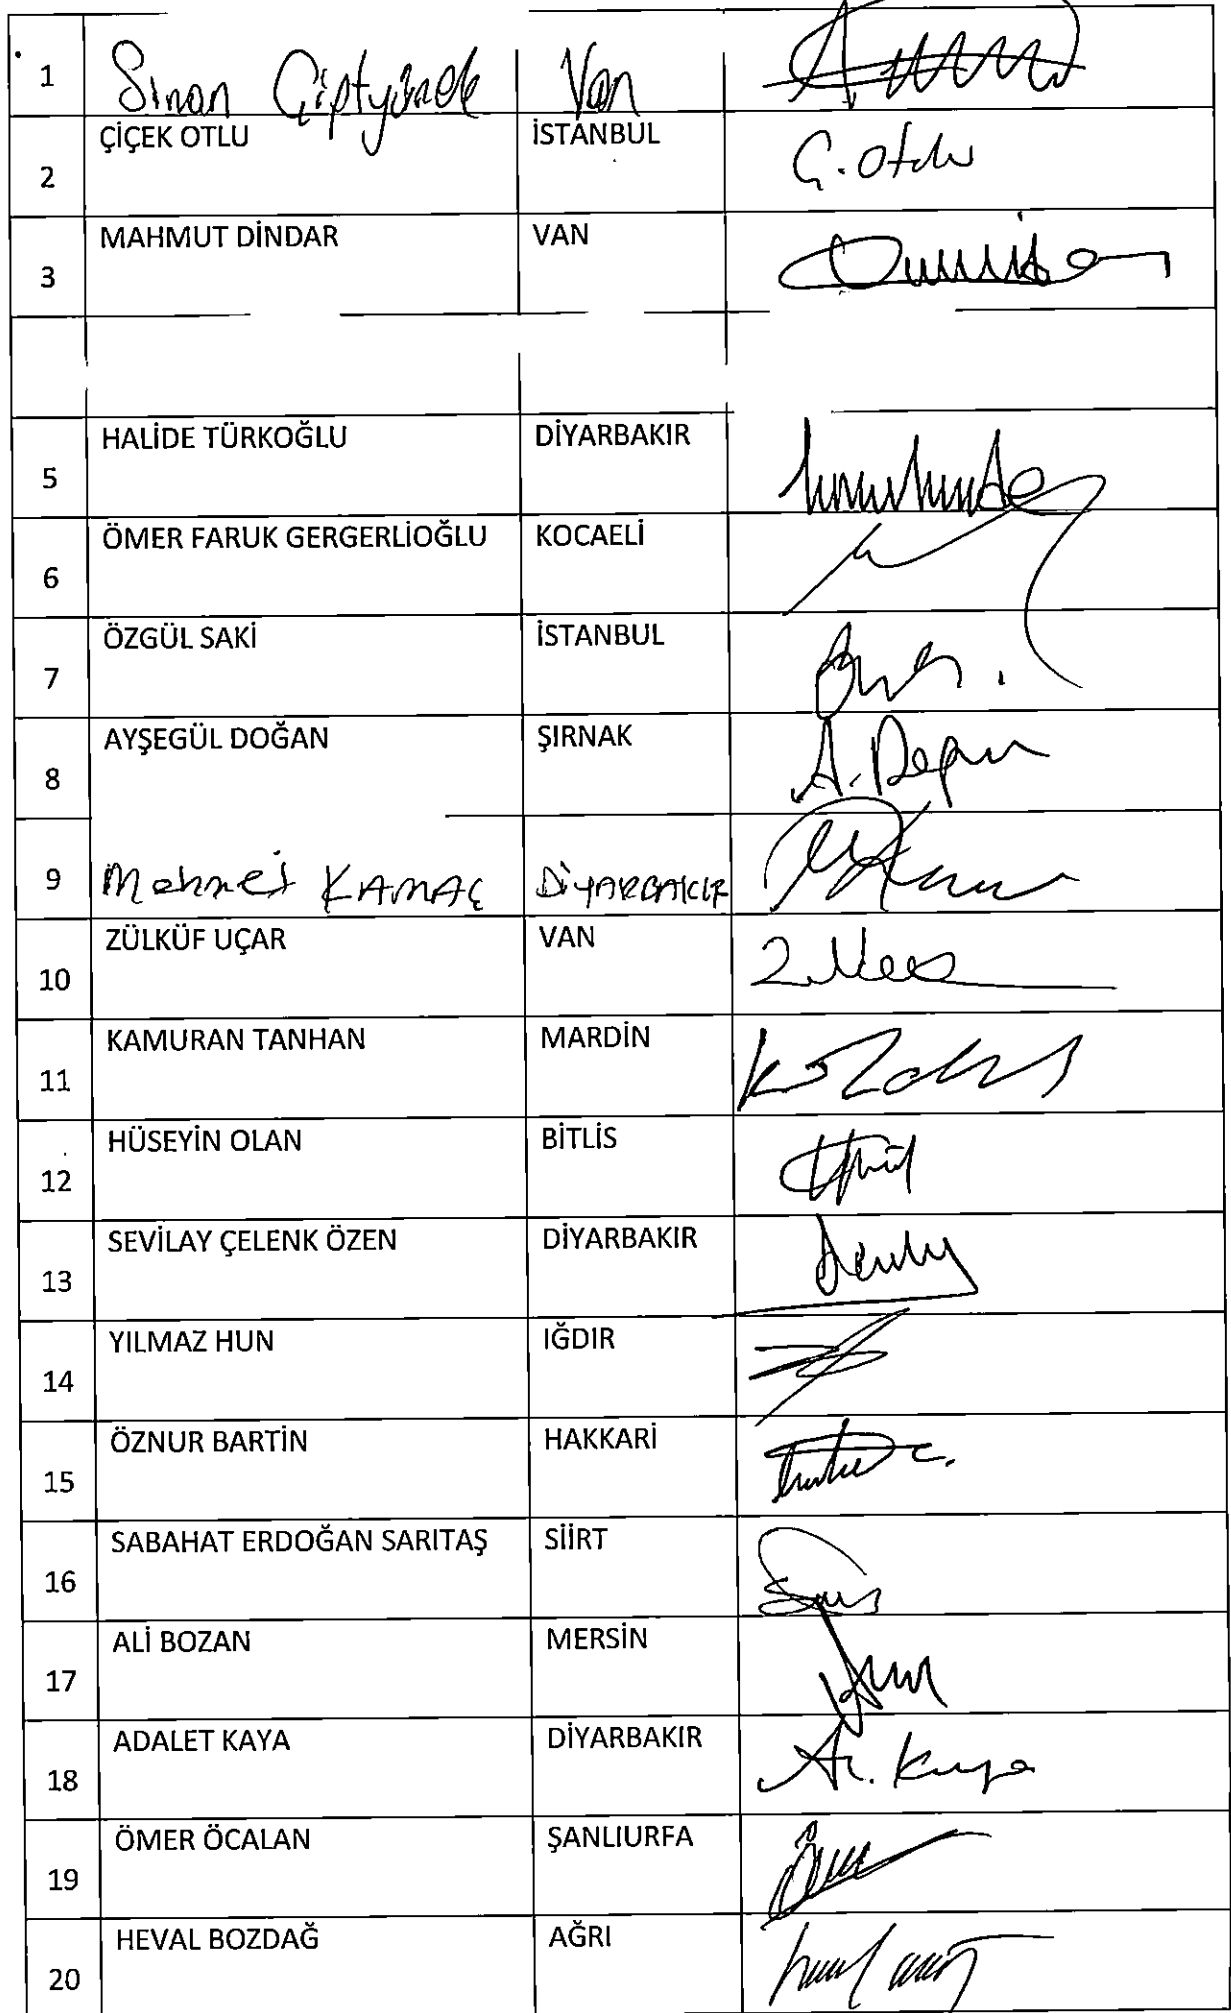 1 Sinan Çiftyürek Van
2 ÇİÇEK OTLU İSTANBUL Ç. Otlu
3 MAHMUT DİNDAR VAN
5 HALİDE TÜRKOĞLU DİYARBAKIR
6 ÖMER FARUK GERGERLİOĞLU KOCAELİ
7 ÖZGÜL SAKİ İSTANBUL
8 AYŞEGÜL DOĞAN ŞIRNAK
9 Mehmet KAMAÇ DİYARBAKIR
10 ZÜLKÜF UÇAR VAN
11 KAMURAN TANHAN MARDİN
12 HÜSEYİN OLAN BİTLİS
13 SEVİLAY ÇELENK ÖZEN DİYARBAKIR
14 YILMAZ HUN IĞDIR
15 ÖZNUR BARTİN HAKKARİ
16 SABAHAT ERDOĞAN SARITAŞ SİİRT
17 ALİ BOZAN MERSİN
18 ADALET KAYA DİYARBAKIR
19 ÖMER ÖCALAN ŞANLIURFA
20 HEVAL BOZDAĞ AĞRI